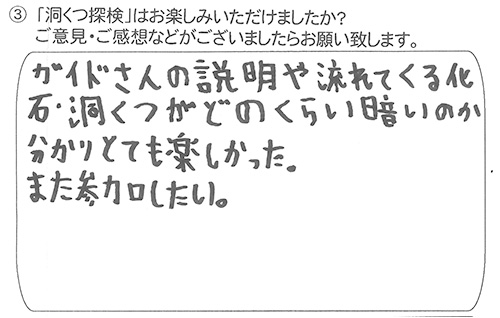 ③ 「洞くつ探検」はお楽しみいただけましたか?
ご意見・ご感想などがございましたらお願い致します。
ガイドさんの説明や流れてくる化
石・洞くつがどのくらい暗いのか
分かりとても楽しかった。
また参加したい。